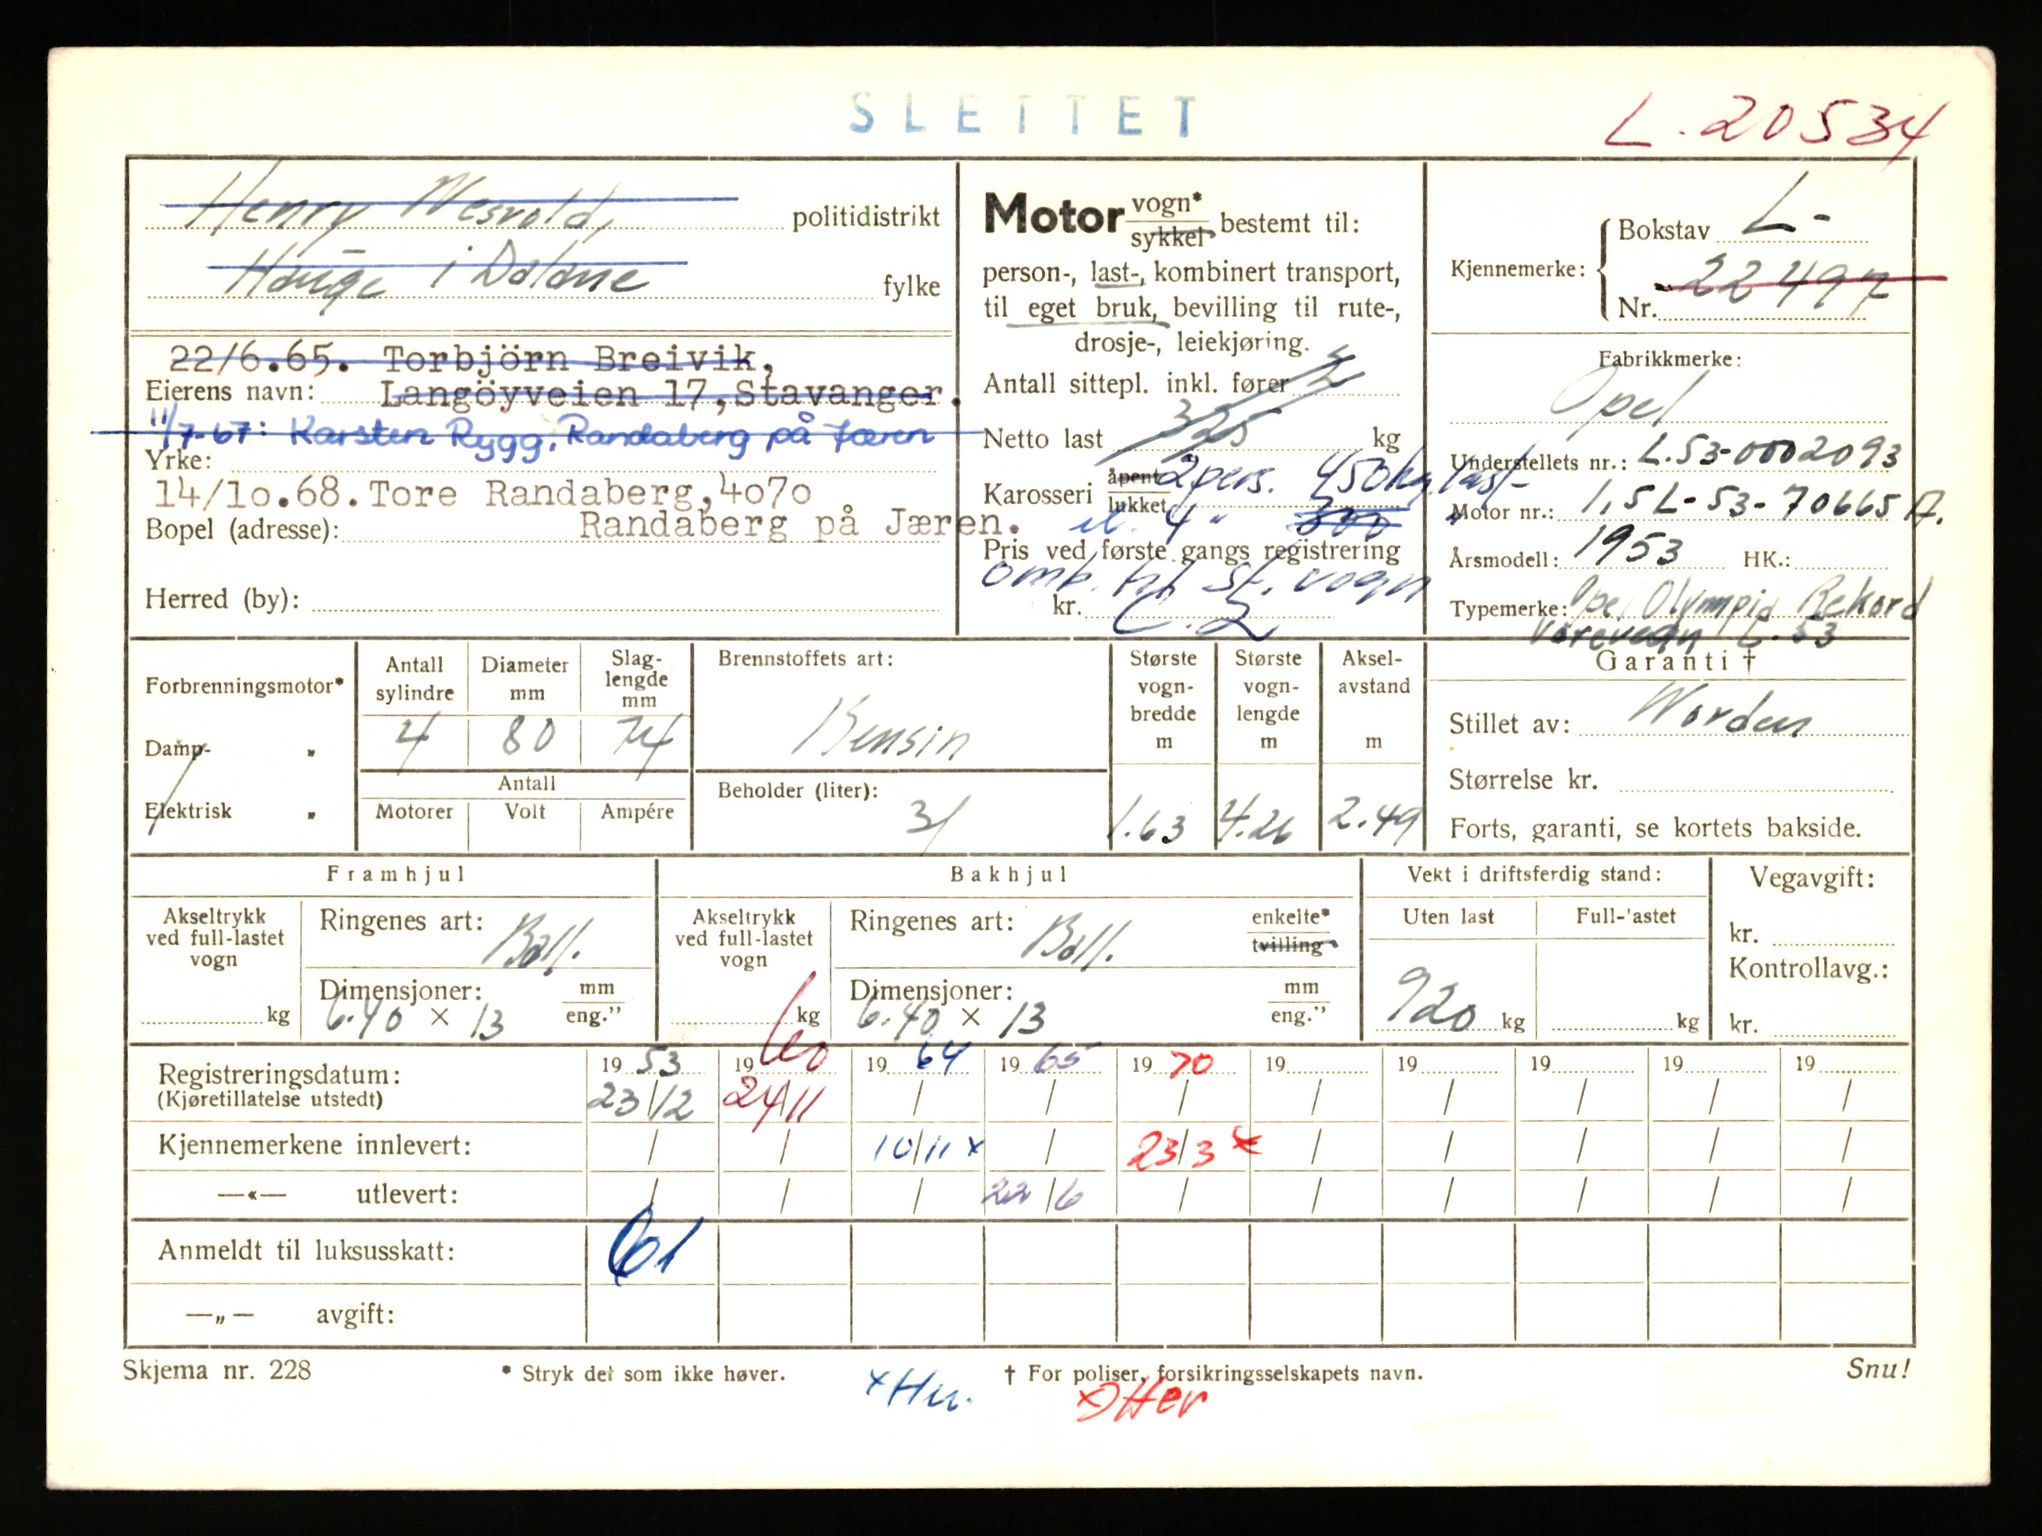 SLETTET
L.20534
Henry
politidistrikt
Hauge i Dalane
fylke
22/6.65. Torbjörn Breivik,
Eierens navn: Langöyveien 17, Stavanger.
11/7-67: Karsten Rygg, Randaberg på Jæren
Yrke:
14/10.68. Tore Randaberg, 4070
Bopel (adresse): Randaberg på Jæren.
Herred (by):
Motor vogn* sykkel bestemt til:
person-, last-, kombinert transport,
til eget bruk, bevilling til rute-,
drosje-, leiekjøring.
Antall sittepl. inkl. fører 2
Netto last 325 kg
Karosseri åpent lukket 2 pers. 450 kg last
el. 4 " 300 "
Pris ved første gangs registrering
omb. til st. vogn
kr.
Kjennemerke: Bokstav L-
Nr. 22497
Fabrikkmerke:
Opel
Understellets nr.: L.53-0002093
Motor nr.: 1,5L-53-70665 A.
Årsmodell: 1953 HK.:
Typemerke: Opel Olympia Rekord
Varevogn L.53
Forbrenningsmotor*
Damp- „
Elektrisk „
Antall sylindre 4
Diameter mm 80
Slag-lengde mm 74
Antall
Motorer Volt Ampére
Brennstoffets art:
Bensin
Beholder (liter):
31
Største vogn-bredde m 1.63
Største vogn-lengde m 4.26
Aksel-avstand m 2.49
Garanti †
Stillet av: Norden
Størrelse kr.
Forts, garanti, se kortets bakside.
Framhjul
Akseltrykk ved full-lastet vogn
kg
Ringenes art: Ball.
Dimensjoner: mm eng."
6.40 × 13
Bakhjul
Akseltrykk ved full-lastet vogn
kg
Ringenes art: Ball. enkelte* tvilling
Dimensjoner: mm eng."
6.40 × 13
Vekt i driftsferdig stand:
Uten last Full-'astet
920 kg kg
Vegavgift:
kr.
Kontrollavg.:
kr.
Registreringsdatum: 19 53 19 60 19 64 19 65 19 70 19 19 19 19 19
(Kjøretillatelse utstedt) 23/12 24/11 / / / / / / / /
Kjennemerkene innlevert: / / 10/11 x / 23/3 x / / / / /
—«— utlevert: / / / 22/6 / / / / / /
Anmeldt til luksusskatt: 61
—„— avgift:
Skjema nr. 228
* Stryk det som ikke høver.
† For poliser, forsikringsselskapets navn.
Snu!